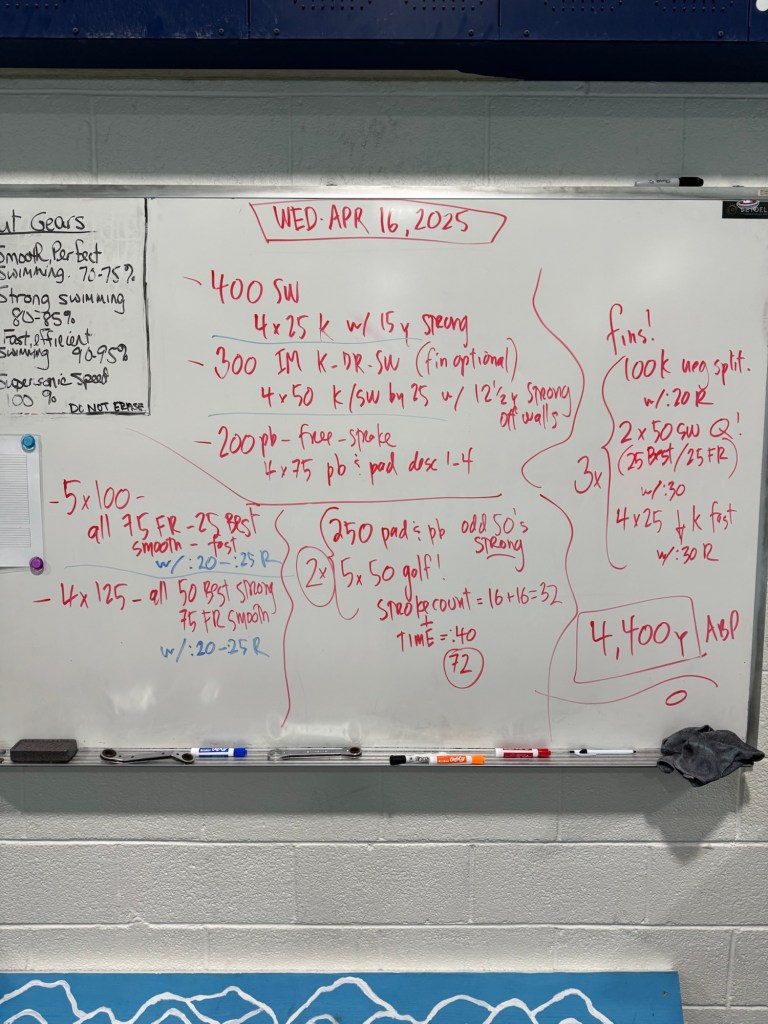 WED. APR 16, 2025
ut Gears
Smooth, Perfect
Swimming. 70-75%
Strong swimming
80-85%
Fast, efficient
swimming 90-95%
Supersonic Speed
100 %
DO NOT ERASE
- 400 SW
4 x 25 K w/ 15 y strong
- 300 IM K-DR-SW (fin optional)
4 x 50 K/SW by 25 w/ 12 1/2 y strong
off walls
- 200 pb - free - stroke
4 x 75 pb & pad desc 1-4
- 5 x 100 -
all 75 FR - 25 Best
smooth - fast
w/ :20 - :25 R
- 4 x 125 - all 50 Best strong
75 FR smooth
w/ :20 - 25 R
2x
250 pad & pb odd 50's
strong
5 x 50 golf!
strokecount = 16+16=32
+
TIME = :40
72
fins!
3x
100 K neg split.
w/ :20 R
2 x 50 SW Q!
(25 Best / 25 FR)
w/ :30
4 x 25 ↓ K fast
w/ :30 R
4,400 y ABP